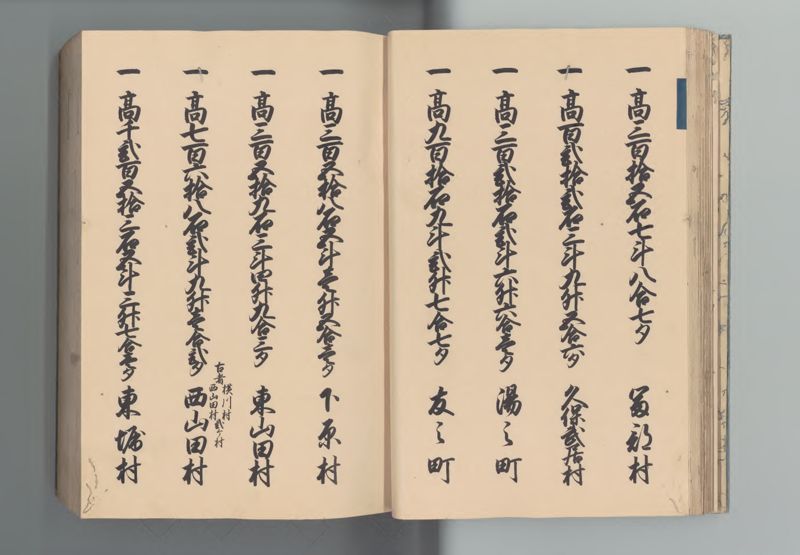 一 高三百拾五石七斗八合七夕 留部村
一 高百弐拾弐石三斗九升五合六夕 久保弐居村
一 高三百弐拾石弐斗六升六合壱夕 湯之町
一 高九百拾石九斗弐升七合七夕 友之町
一 高三百五拾八石五斗壱升五合壱夕 下原村
一 高三百五拾九石三斗四升九合三夕 東山田村
横川村
古者西山田村弐ヶ村
一 高七百六拾八石弐斗九升壱合弐夕 西山田村
一 高千弐百五拾三石五斗三升七合壱夕 東堀村